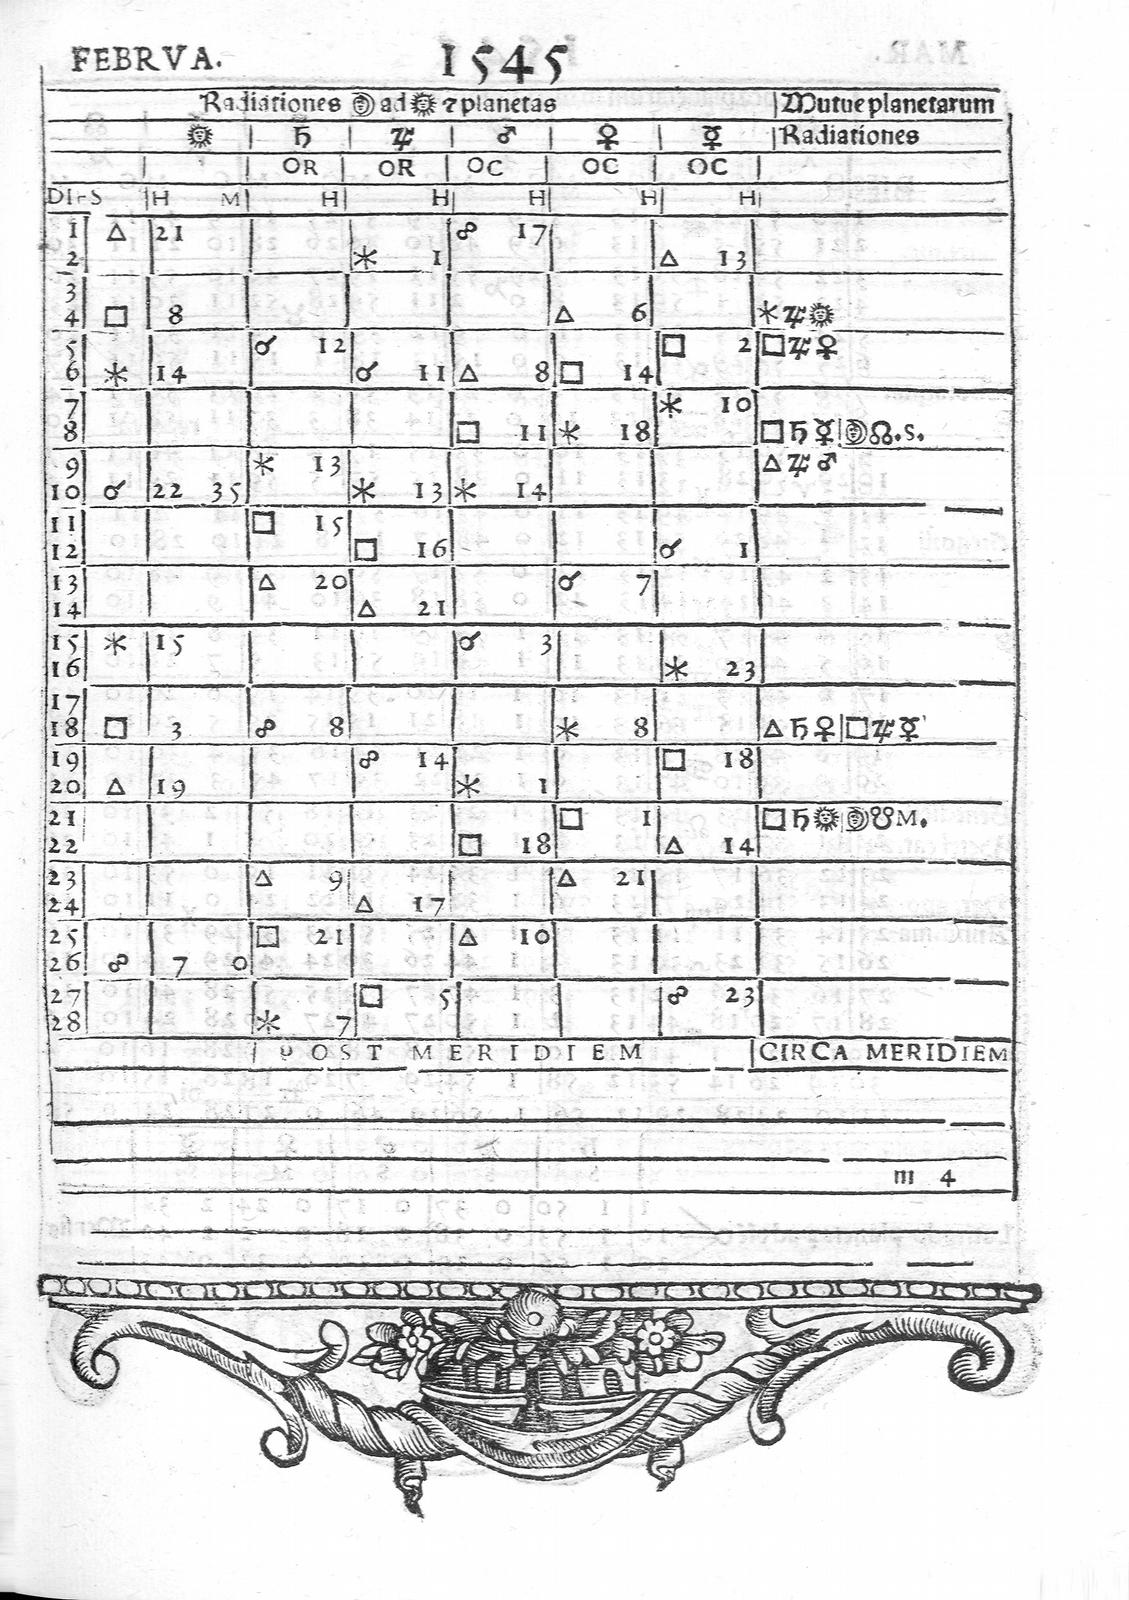 FEBRVA. 1545
Radiationes ☽ ad ☉ ⁊ planetas | Mutue planetarum
☉ | ♄ | ♃ | ♂ | ♀ | ☿ | Radiationes
OR | OR | OC | OC | OC
DIES | H M | H | H | H | H | H
1 △ 21 | | | ☍ 17 | | |
2 | | ✶ 1 | | | △ 13 |
3
4 □ 8 | | | | △ 6 | | ✶♃☉
5 | ☌ 12 | | | | □ 2 | □♃♀
6 ✶ 14 | | ☌ 11 | △ 8 | □ 14 | |
7 | | | | | ✶ 10 |
8 | | | □ 11 | ✶ 18 | | □♄☿|☽☊.S.
9 | ✶ 13 | | | | | △♃♂
10 ☌ 22 35 | | ✶ 13 | ✶ 14 | | |
11 | □ 15 | | | | |
12 | | □ 16 | | | ☌ 1 |
13 | △ 20 | | | ☌ 7 | |
14 | | △ 21 | | | |
15 ✶ 15 | | | ☌ 3 | | |
16 | | | | | ✶ 23 |
17
18 □ 3 | ☍ 8 | | | ✶ 8 | | △♄♀|□♃☿
19 | | ☍ 14 | | | □ 18 |
20 △ 19 | | | ✶ 1 | | |
21 | | | | □ 1 | | □♄☉|☽☋M.
22 | | | □ 18 | | △ 14 |
23 | △ 9 | | | △ 21 | |
24 | | △ 17 | | | |
25 | □ 21 | | △ 10 | | |
26 ☍ 7 0
27 | | □ 5 | | | ☍ 23 |
28 | ✶ 7 | | | | |
POST MERIDIEM | CIRCA MERIDIEM
m 4